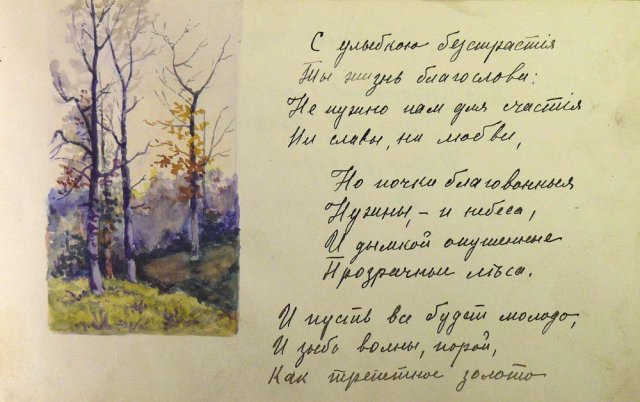 С улыбкою безстрастія
Ты жизнь благослови:
Не нужно нам для счастія
Ни славы, ни любви,
Но почки благовонныя
Нужны, – и небеса,
И дымкой опушенные
Прозрачные лѣса.
И пусть все будет молодо,
И зыбь волны, порой,
Как трепетное золото